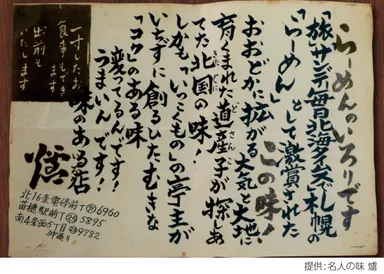 らーめんのいろりです
「旅」「サンデー毎日」「北海タイムス」で札幌の
「らーめん」として激賞された
この味!
おおどかに拡がる大気と大地に
育くまれた道産子が探しあ
どさんこ
てた北国の味!
しかも「いっこくもの」の亭主が
いちずに創るひたむきな
「コク」のある味
変ってるんです!
うまいんです!
味のある店
爐
北16条電停前T 6960
苗穂駅前T 5895
南4条西5丁目 9782
仲通り
一寸したお
食事もでき
ます
出前も
いたします
提供:名人の味 爐